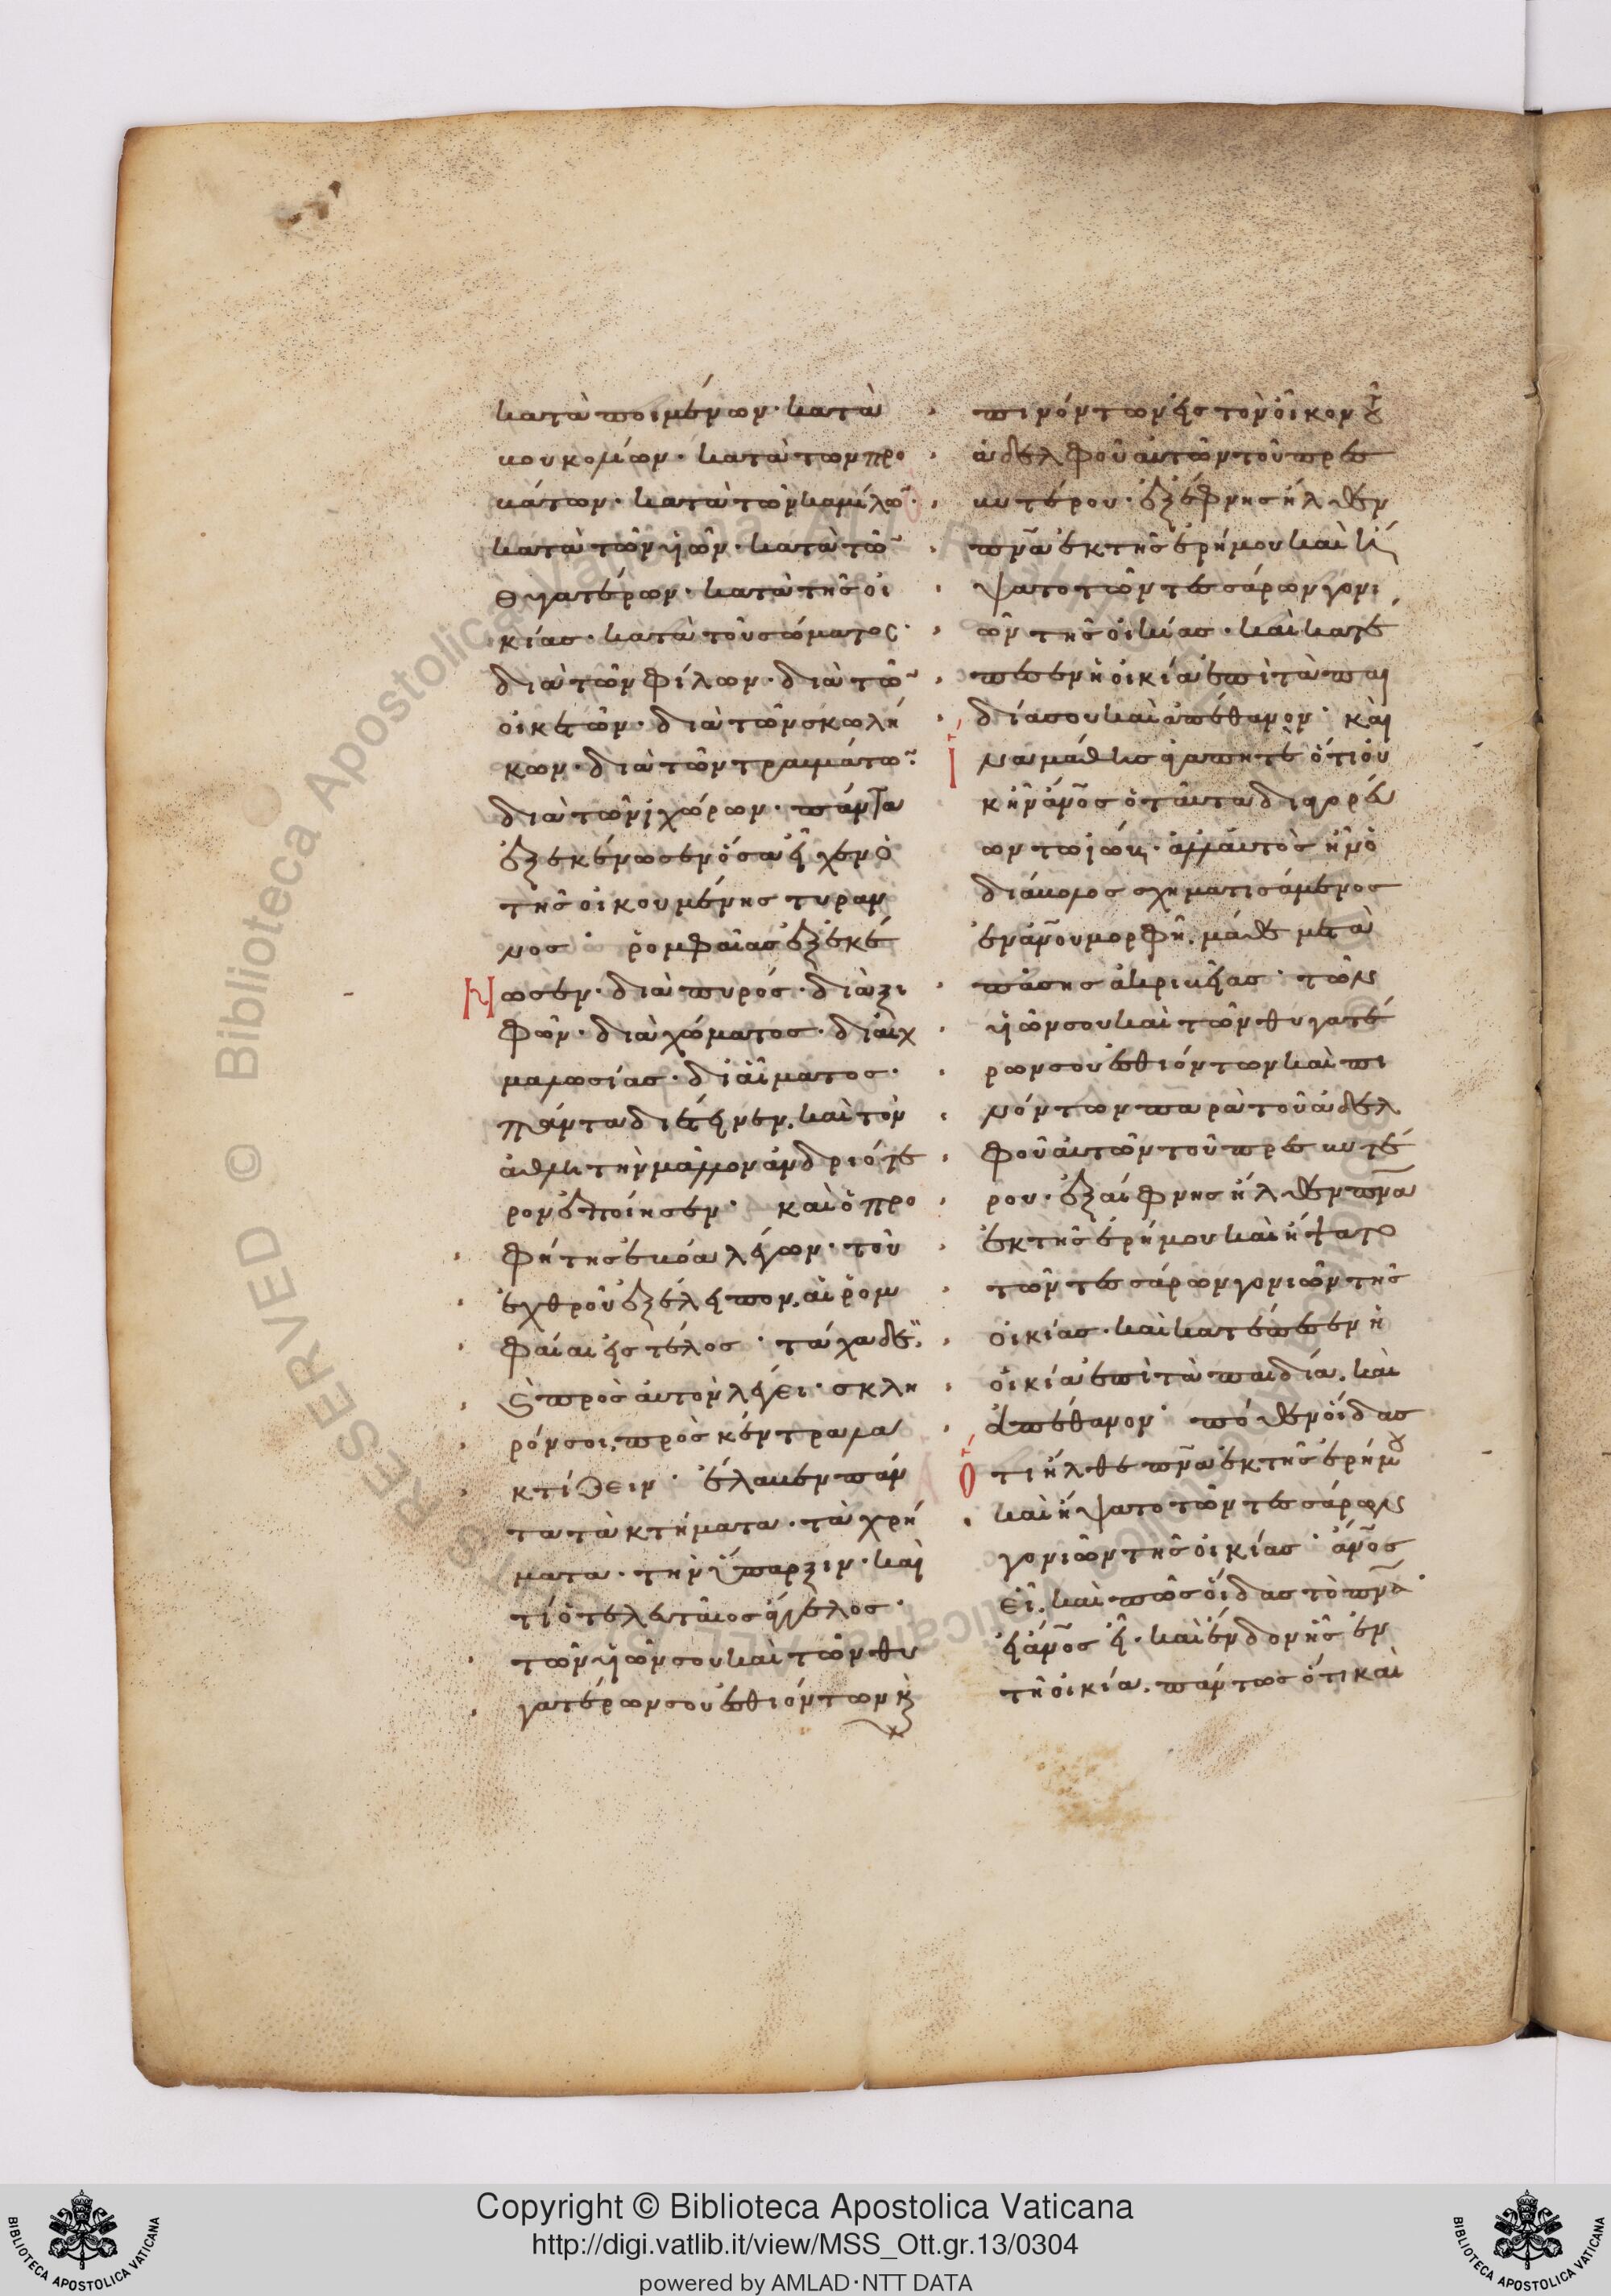 κατὰ ποιμένων· κατὰ
βουκολίων· κατὰ τῶν προ
βάτων· κατὰ τῶν καμίλω῀·
κατὰ τῶν ϋἱῶν· κατὰ τῶ῀
θυγατέρων· κατὰ τῆς οἰ
κίας· κατὰ τοῦ σώματος·
διὰ τῶν φίλων· διὰ τῶ῀
οἰκετῶν· διὰ τῶν σκωλή
κων· διὰ τῶν τραυμάτω῀·
διὰ τῶν ἰχώρων· πάντα
ἐξεκένωσεν ὅσα εἶχεν ὁ
τῆς οἰκουμένης τυραν
νος· ῥομφαίας ἐξεκέ
νωσεν· διὰ πυρός· διὰ ξι
φῶν· διὰ χώματος· δι αἰχ
μαλωσίας· δι αἵματος·
πάντα διέτεινεν. καὶ τὸν
ἀθλητὴν μᾶλλον ἀνδριότε
ρον ἐποίησεν· καὶ ὁ προ
φήτης ἐβόα λέγων· τοῦ
ἐχθροῦ ἐξέλειπον. αἱ ῥομ
φαίαι εἰς τέλος· τάχα δε
ϛ πρὸς αὐτὸν λέγει· σκλη
ρόν σοι. πρὸς κέντρα λα
κτίζειν· ἔλαβεν πάν
τα τὰ κτήματα· τὰ χρή
ματα· τὴν ὕπαρξιν· καὶ
τί ὁ τελευταῖος ἄγγελος·
τῶν ϋἱῶν σου καὶ τῶν θυ
γατέρων σου ἐσθιόντων κ̀
πινόντων εἰς τὸν οἶκον τοῦ
ἀδελφοῦ αὐτῶν τοῦ πρεσ
βυτέρου· ἐξέφνης ἦλθεν
πν̅α ἐκ τῆς ἐρήμου καὶ ἥ
ψατο τῶν τεσσάρων γονι
ῶν τῆς οἰκίας· καὶ κατέ
πεσεν ἡ οἰκία ἐπὶ τὰ παι
δία σου καὶ ἀπέθανον· καὶ
ἵνα μάθῃς ἀγαπητὲ ὅτι οὐ
κ ἦν ἄν̅ος ὁ ταῦτα διαγορεύ
ων τῶ ἰώβ· ἀλλ αὐτὸς ἦν ὁ
διάβολος σχηματισάμενος
ἐν ἀν̅ου μορφῆ. μάθε μετὰ
πάσης ἀκριβείας· τῶν
ϋἱῶν σου καὶ τῶν θυγατέ
ρων σου ἐσθιόντων καὶ πι
νόντων παρὰ τοῦ ἀδελ
φοῦ αὐτῶν τοῦ πρεσβυτέ
ρου· ἐξαίφνης ἦλθεν πν̅α
ἐκ τῆς ἐρήμου καὶ ἥψατο
τῶν τεσσάρων γονιῶν τῆς
οἰκίας· καὶ κατέπεσεν ἡ
οἰκία ἐπὶ τὰ παιδία. καὶ
ἀπέθανον· πόθεν οἶδας
ὅτι ἦλθε πν̅α ἐκ τῆς ἐρήμου
καὶ ἥψατο τῶν τεσσάρων
γονιῶν τῆς οἰκίας· ἄν̅ος
εἶ. καὶ πῶς οἶδας τὸ πν̅α·
εἰ ἄν̅ος εἶ· καὶ ἔνδον ἦς ἐν
τῆ οἰκία. πάντως ὅτι καὶ
Copyright © Biblioteca Apostolica Vaticana
http://digi.vatlib.it/view/MSS_Ott.gr.13/0304
powered by AMLAD·NTT DATA